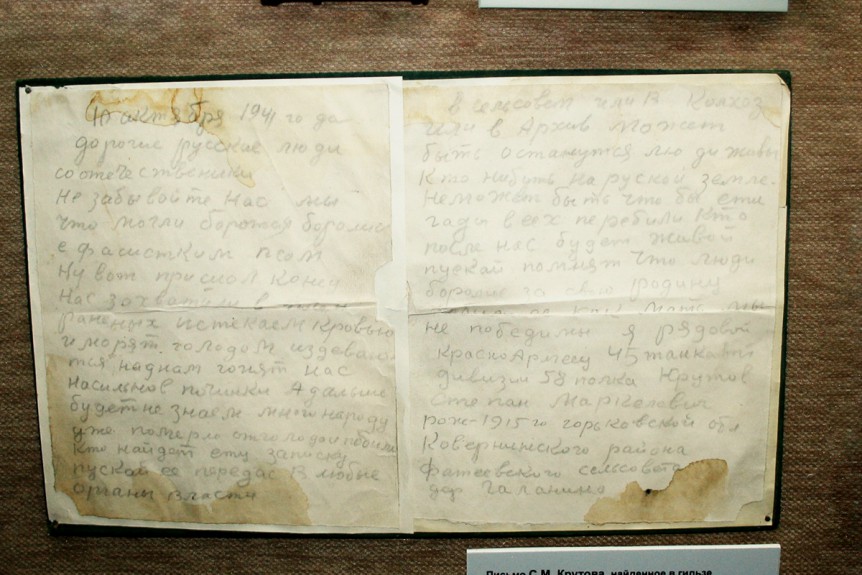 октября 1941 го да
дорогие русские люди
соотечественники
Не забывайте нас мы
что могли боролися
с фашистким псом
Ну вот пришол конец
Нас захватили в плен
раненых истекаем кровью
и морят голодом издеваю
тся над нам гонят нас
А дальше
будет не знаем много народу
уже померло
кто найдет ету записку
пускай ее передас в любые
органы власти
в сельсовет или в колхоз
или в Архив может
быть останутся лю ди живы
Кто нибуть на руской земле.
Неможет быть что бы ети
гады всех перебили Кто
после нас будет живой
пускай помнят что люди
боролис за свою родину
как мать мы
непобедимы я рядовой
красноАрмеец 45 танкавой
дивизии 58 полка Крутов
Степан Маркелович
рож-1915 го горьковской обл
Ковернинского района
Фатеевского селсовета
дер Галанино
Письмо С.М. Крутова, найденное в гильзе